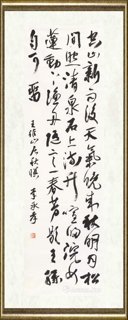 空山新雨後天氣晚來秋明月松
間照清泉石上流竹喧歸浣女
蓮動下漁舟隨意春芳歇王孫
自可留
王維山居秋暝